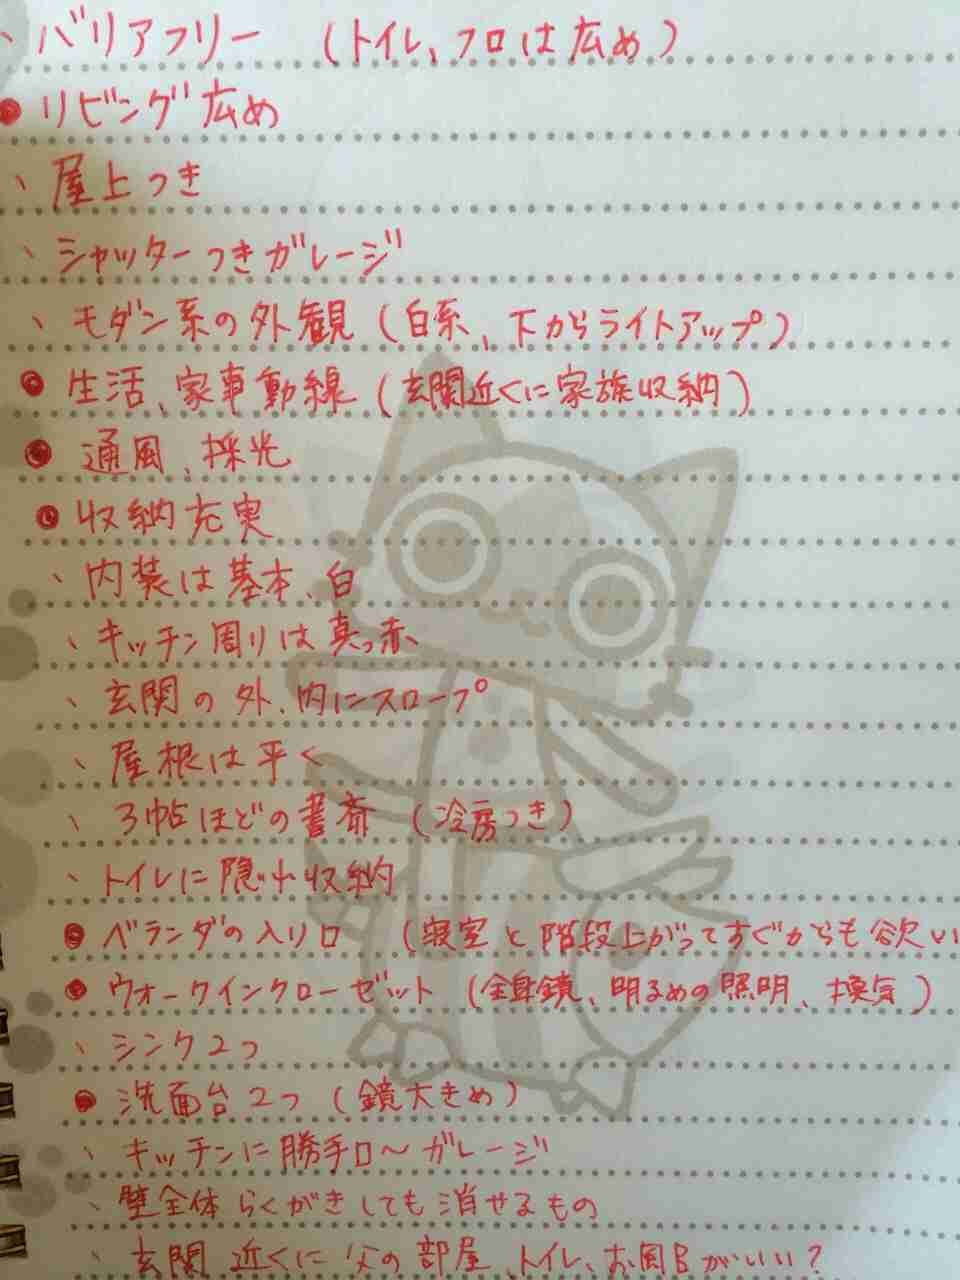 、バリアフリー （トイレ、フロは広め）
● リビング広め
、屋上つき
、シャッターつきガレージ
、モダン系の外観（白系、下からライトアップ）
● 生活、家事動線（玄関近くに家族収納）
● 通風、採光
● 収納充実
、内装は基本、白
、キッチン周りは真っ赤
、玄関の外、内にスロープ
、屋根は平く
、3帖ほどの書斎 （冷房つき）
、トイレに隠れ収納
● ベランダの入り口 （寝室と階段上がってすぐからも欲い
● ウォークインクローゼット （全身鏡、明るめの照明、換気）
、シンク2つ
● 洗面台2つ（鏡大きめ）
、キッチンに勝手口〜ガレージ
、壁全体らくがきしても消せるもの
、玄関近くに父の部屋、トイレ、お風呂がいい？